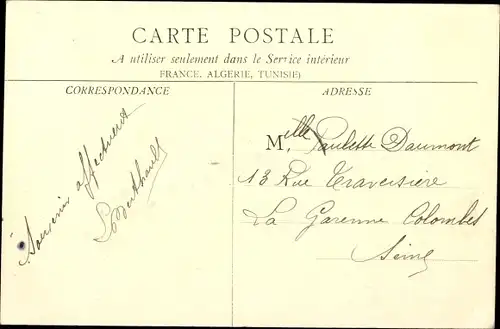 CARTE POSTALE
A utiliser seulement dans le Service intérieur
FRANCE, ALGERIE, TUNISIE)
CORRESPONDANCE
Souvenir affectueux
ADRESSE
Mlle Paulette Daumont
13 Rue Traversière
La Garenne Colombes
Seine